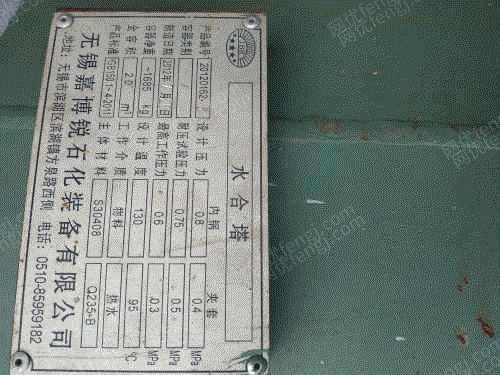 水合塔
内锅 夹套
产品编号 20120162- 设计压力 0.8 0.4 MPa
容器类别 耐压试验压力 0.75 0.5 MPa
制造日期 2012年 月 日 最高工作压力 0.6 0.3 MPa
容器净重 ~1685 kg 设计温度 130 95 ℃
全容积 2.0 m³ 工作介质 物料 热水
产品标准 GB150.1~4-2011 主体材料 S30408 Q235-B
无锡嘉博锐石化装备有限公司
地址：无锡市滨湖区滨湖镇方泉路西侧 电话：0510-85959182